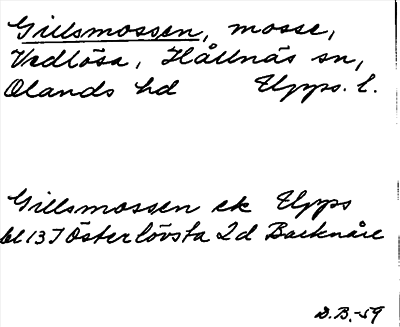 Gillsmossen, mosse,
Vedlösa, Hållnäs sn,
Olands hd Upps. l.
Gillsmossen ek Upps
bl 137 Österlövsta 2d Backnåre
D.B.-59